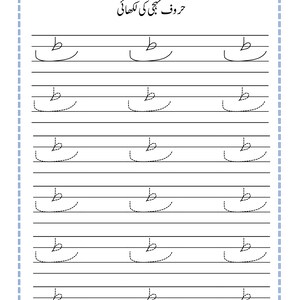 حروف تہجی کی لکھائی
ٹ ٹ ٹ
ٹ ٹ ٹ
ٹ ٹ ٹ
ٹ ٹ ٹ
ٹ ٹ ٹ